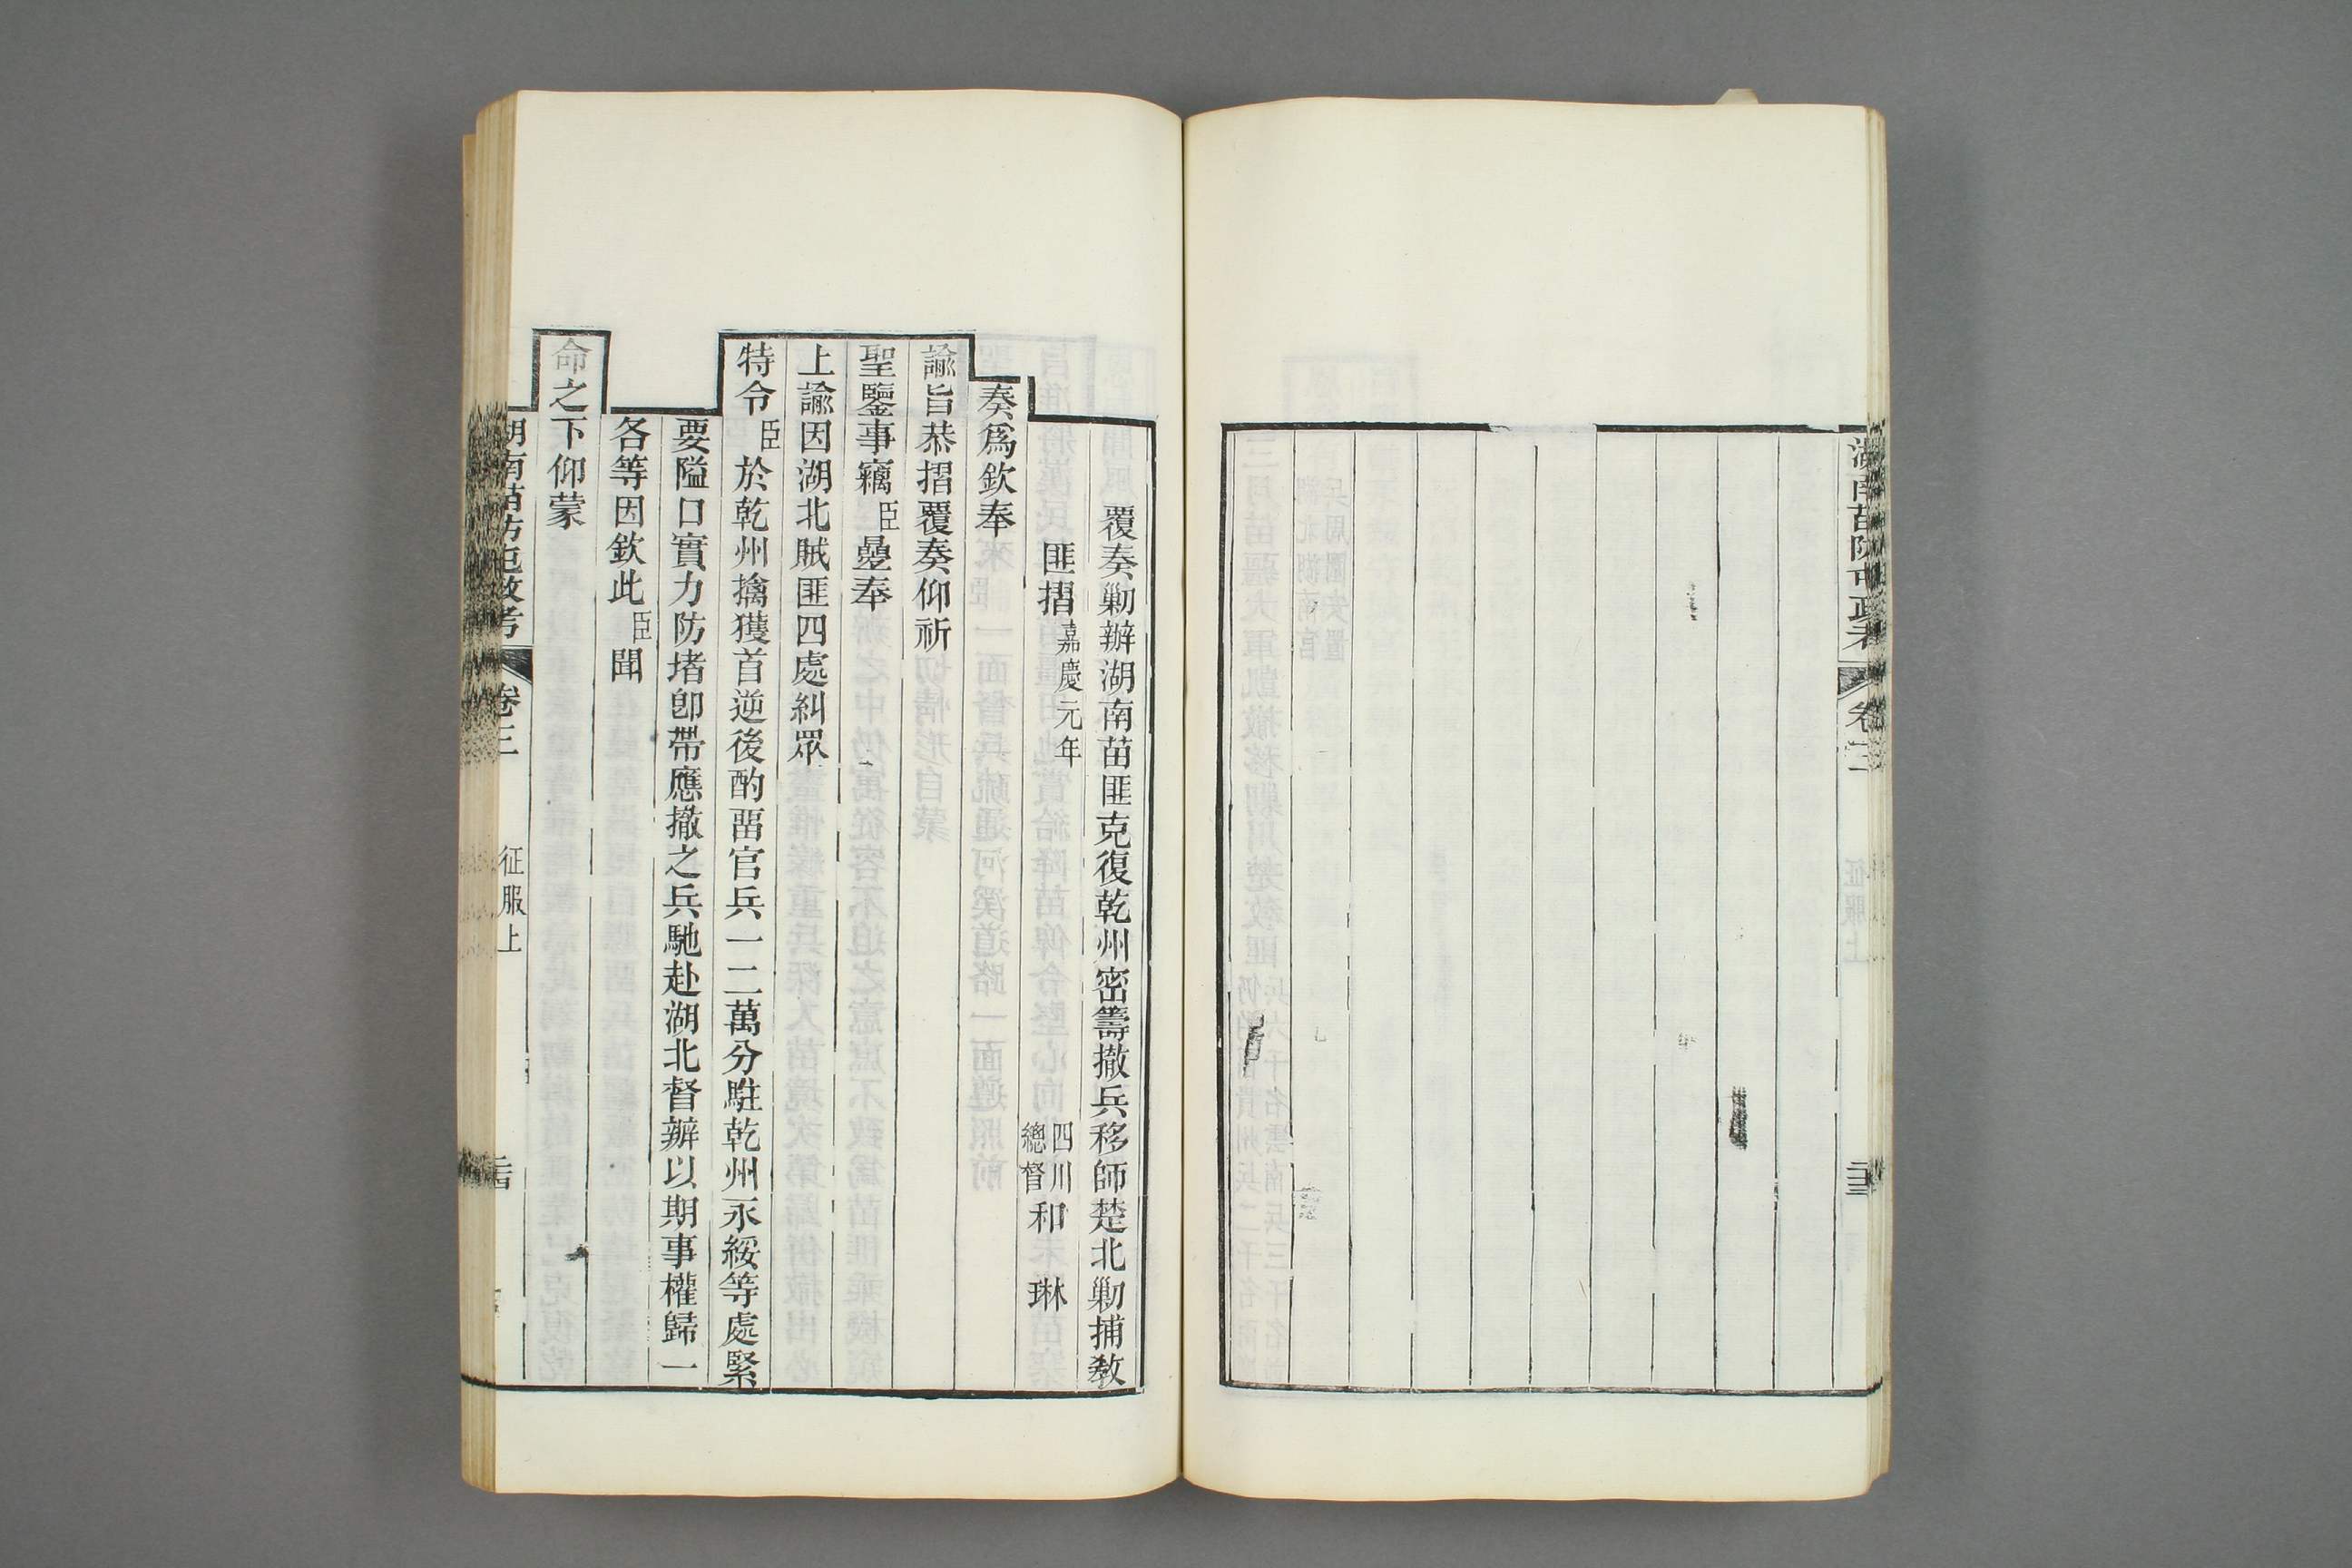 湖南苗防屯政考
卷三
征服上
二十三
覆奏勦辦湖南苗匪克復乾州密籌撤兵移師楚北勦捕教
匪摺嘉慶元年 四川總督和 琳
奏爲欽奉
諭旨恭摺覆奏仰祈
聖鑒事竊臣疊奉
上諭因湖北賊匪四處糾眾
特令臣於乾州擒獲首逆後酌畱官兵一二萬分駐乾州永綏等處緊
要隘口實力防堵卽帶應撤之兵馳赴湖北督辦以期事權歸一
各等因欽此臣聞
命之下仰蒙
湖南苗防屯政考
卷三
征服上
二十四